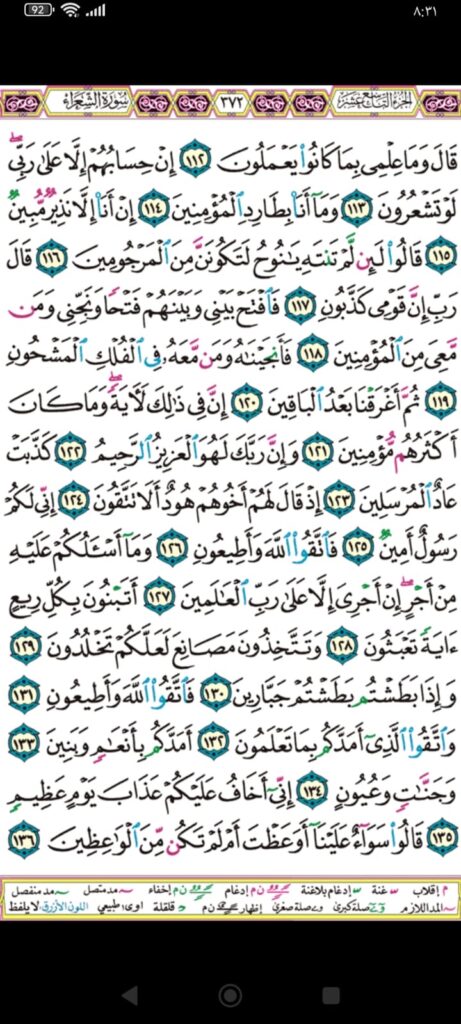 ٨:٣١
92
الجزء التاسع عشر
٣٧٢
سورة الشعراء
قَالَ وَمَا عِلْمِى بِمَا كَانُوا۟ يَعْمَلُونَ ١١٢ إِنْ حِسَابُهُمْ إِلَّا عَلَىٰ رَبِّى ۖ
لَوْ تَشْعُرُونَ ١١٣ وَمَآ أَنَا۠ بِطَارِدِ ٱلْمُؤْمِنِينَ ١١٤ إِنْ أَنَا۠ إِلَّا نَذِيرٌ مُّبِينٌ
١١٥ قَالُوا۟ لَئِن لَّمْ تَنتَهِ يَـٰنُوحُ لَتَكُونَنَّ مِنَ ٱلْمَرْجُومِينَ ١١٦ قَالَ
رَبِّ إِنَّ قَوْمِى كَذَّبُونِ ١١٧ فَٱفْتَحْ بَيْنِى وَبَيْنَهُمْ فَتْحًا وَنَجِّنِى وَمَن
مَّعِىَ مِنَ ٱلْمُؤْمِنِينَ ١١٨ فَأَنجَيْنَـٰهُ وَمَن مَّعَهُۥ فِى ٱلْفُلْكِ ٱلْمَشْحُونِ
١١٩ ثُمَّ أَغْرَقْنَا بَعْدُ ٱلْبَاقِينَ ١٢٠ إِنَّ فِى ذَٰلِكَ لَـَٔايَةً ۖ وَمَا كَانَ
أَكْثَرُهُم مُّؤْمِنِينَ ١٢١ وَإِنَّ رَبَّكَ لَهُوَ ٱلْعَزِيزُ ٱلرَّحِيمُ ١٢٢ كَذَّبَتْ
عَادٌ ٱلْمُرْسَلِينَ ١٢٣ إِذْ قَالَ لَهُمْ أَخُوهُمْ هُودٌ أَلَا تَتَّقُونَ ١٢٤ إِنِّى لَكُمْ
رَسُولٌ أَمِينٌ ١٢٥ فَٱتَّقُوا۟ ٱللَّهَ وَأَطِيعُونِ ١٢٦ وَمَآ أَسْـَٔلُكُمْ عَلَيْهِ
مِنْ أَجْرٍ ۖ إِنْ أَجْرِىَ إِلَّا عَلَىٰ رَبِّ ٱلْعَـٰلَمِينَ ١٢٧ أَتَبْنُونَ بِكُلِّ رِيعٍ
ءَايَةً تَعْبَثُونَ ١٢٨ وَتَتَّخِذُونَ مَصَانِعَ لَعَلَّكُمْ تَخْلُدُونَ ١٢٩
وَإِذَا بَطَشْتُم بَطَشْتُمْ جَبَّارِينَ ١٣٠ فَٱتَّقُوا۟ ٱللَّهَ وَأَطِيعُونِ ١٣١
وَٱتَّقُوا۟ ٱلَّذِىٓ أَمَدَّكُم بِمَا تَعْلَمُونَ ١٣٢ أَمَدَّكُم بِأَنْعَـٰمٍ وَبَنِينَ ١٣٣
وَجَنَّـٰتٍ وَعُيُونٍ ١٣٤ إِنِّىٓ أَخَافُ عَلَيْكُمْ عَذَابَ يَوْمٍ عَظِيمٍ
١٣٥ قَالُوا۟ سَوَآءٌ عَلَيْنَآ أَوَعَظْتَ أَمْ لَمْ تَكُن مِّنَ ٱلْوَٰعِظِينَ ١٣٦
م إقلاب غنة إدغام بلاغنة ن م إدغام ن م إخفاء مد متصل مد منفصل
المد اللازم صلة كبرى و صلة صغرى إظهار ن م قلقلة اوى: طبيعي اللون الأزرق: لا يلفظ